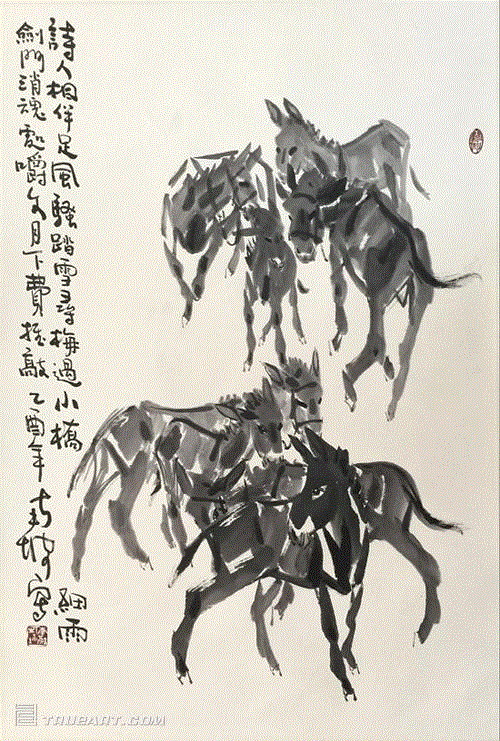 詩人相伴足風騷踏雪尋梅過小橋細雨
劍門消魂處嚼文月下費推敲乙酉年坡寫
TRUEART.COM